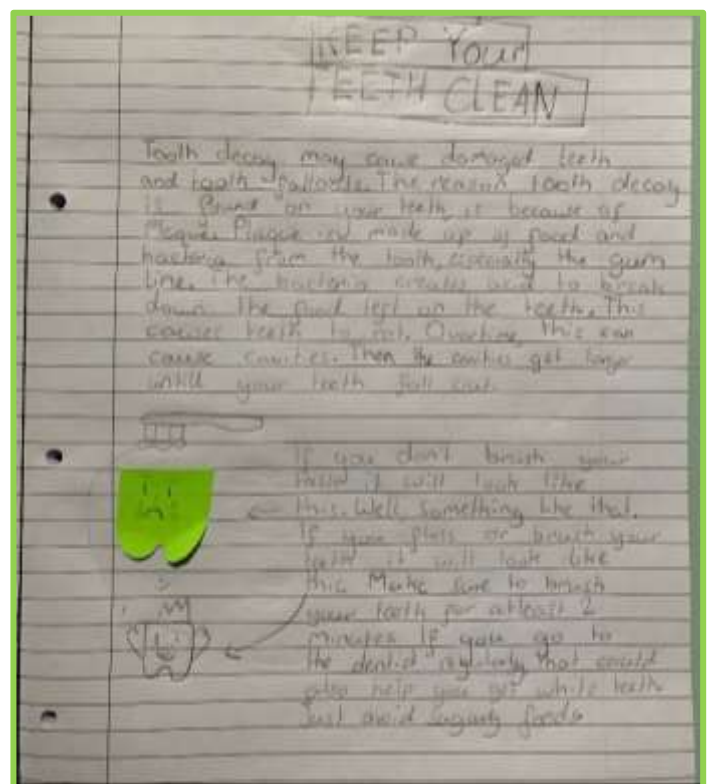 KEEP Your
TEETH CLEAN
Tooth decay may cause damaged teeth
and tooth fallouts. The reason tooth decay
is found on your teeth is because of
Plaque. Plaque is made up of food and
bacteria from the tooth, especially the gum
line. The bacteria creates acid to break
down the food left on the teeth. This
causes teeth to rot. Overtime, this can
cause cavities. Then the cavities get larger
untill your teeth fall out.
If you don't brush your
teeth it will look like
this. Well, something like that.
If you floss or brush your
teeth it will look like
this Make sure to brush
your teeth for atleast 2
minutes If you go to
the dentist regularly that could
also help you get white teeth
Just avoid sugary foods